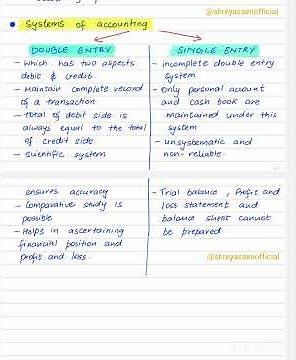 @shreyasainiofficial
• Systems of accounting
DOUBLE ENTRY
- Which has two aspects
debit & credit.
- Maintain complete record
of a transaction
- total of debit side is
always equal to the total
of credit side
- Scientific system
SINGLE ENTRY
- incomplete double entry
system
- Only personal account
and cash book are
maintained under this
system
- unsystematic and
non-reliable.
ensures accuracy
- Comparative study is
possible
- Helps in ascertaining
financial position and
profit and loss.
- Trial balance, Profit and
loss statement and
balance sheet cannot
be prepared.
@shreyasainiofficial